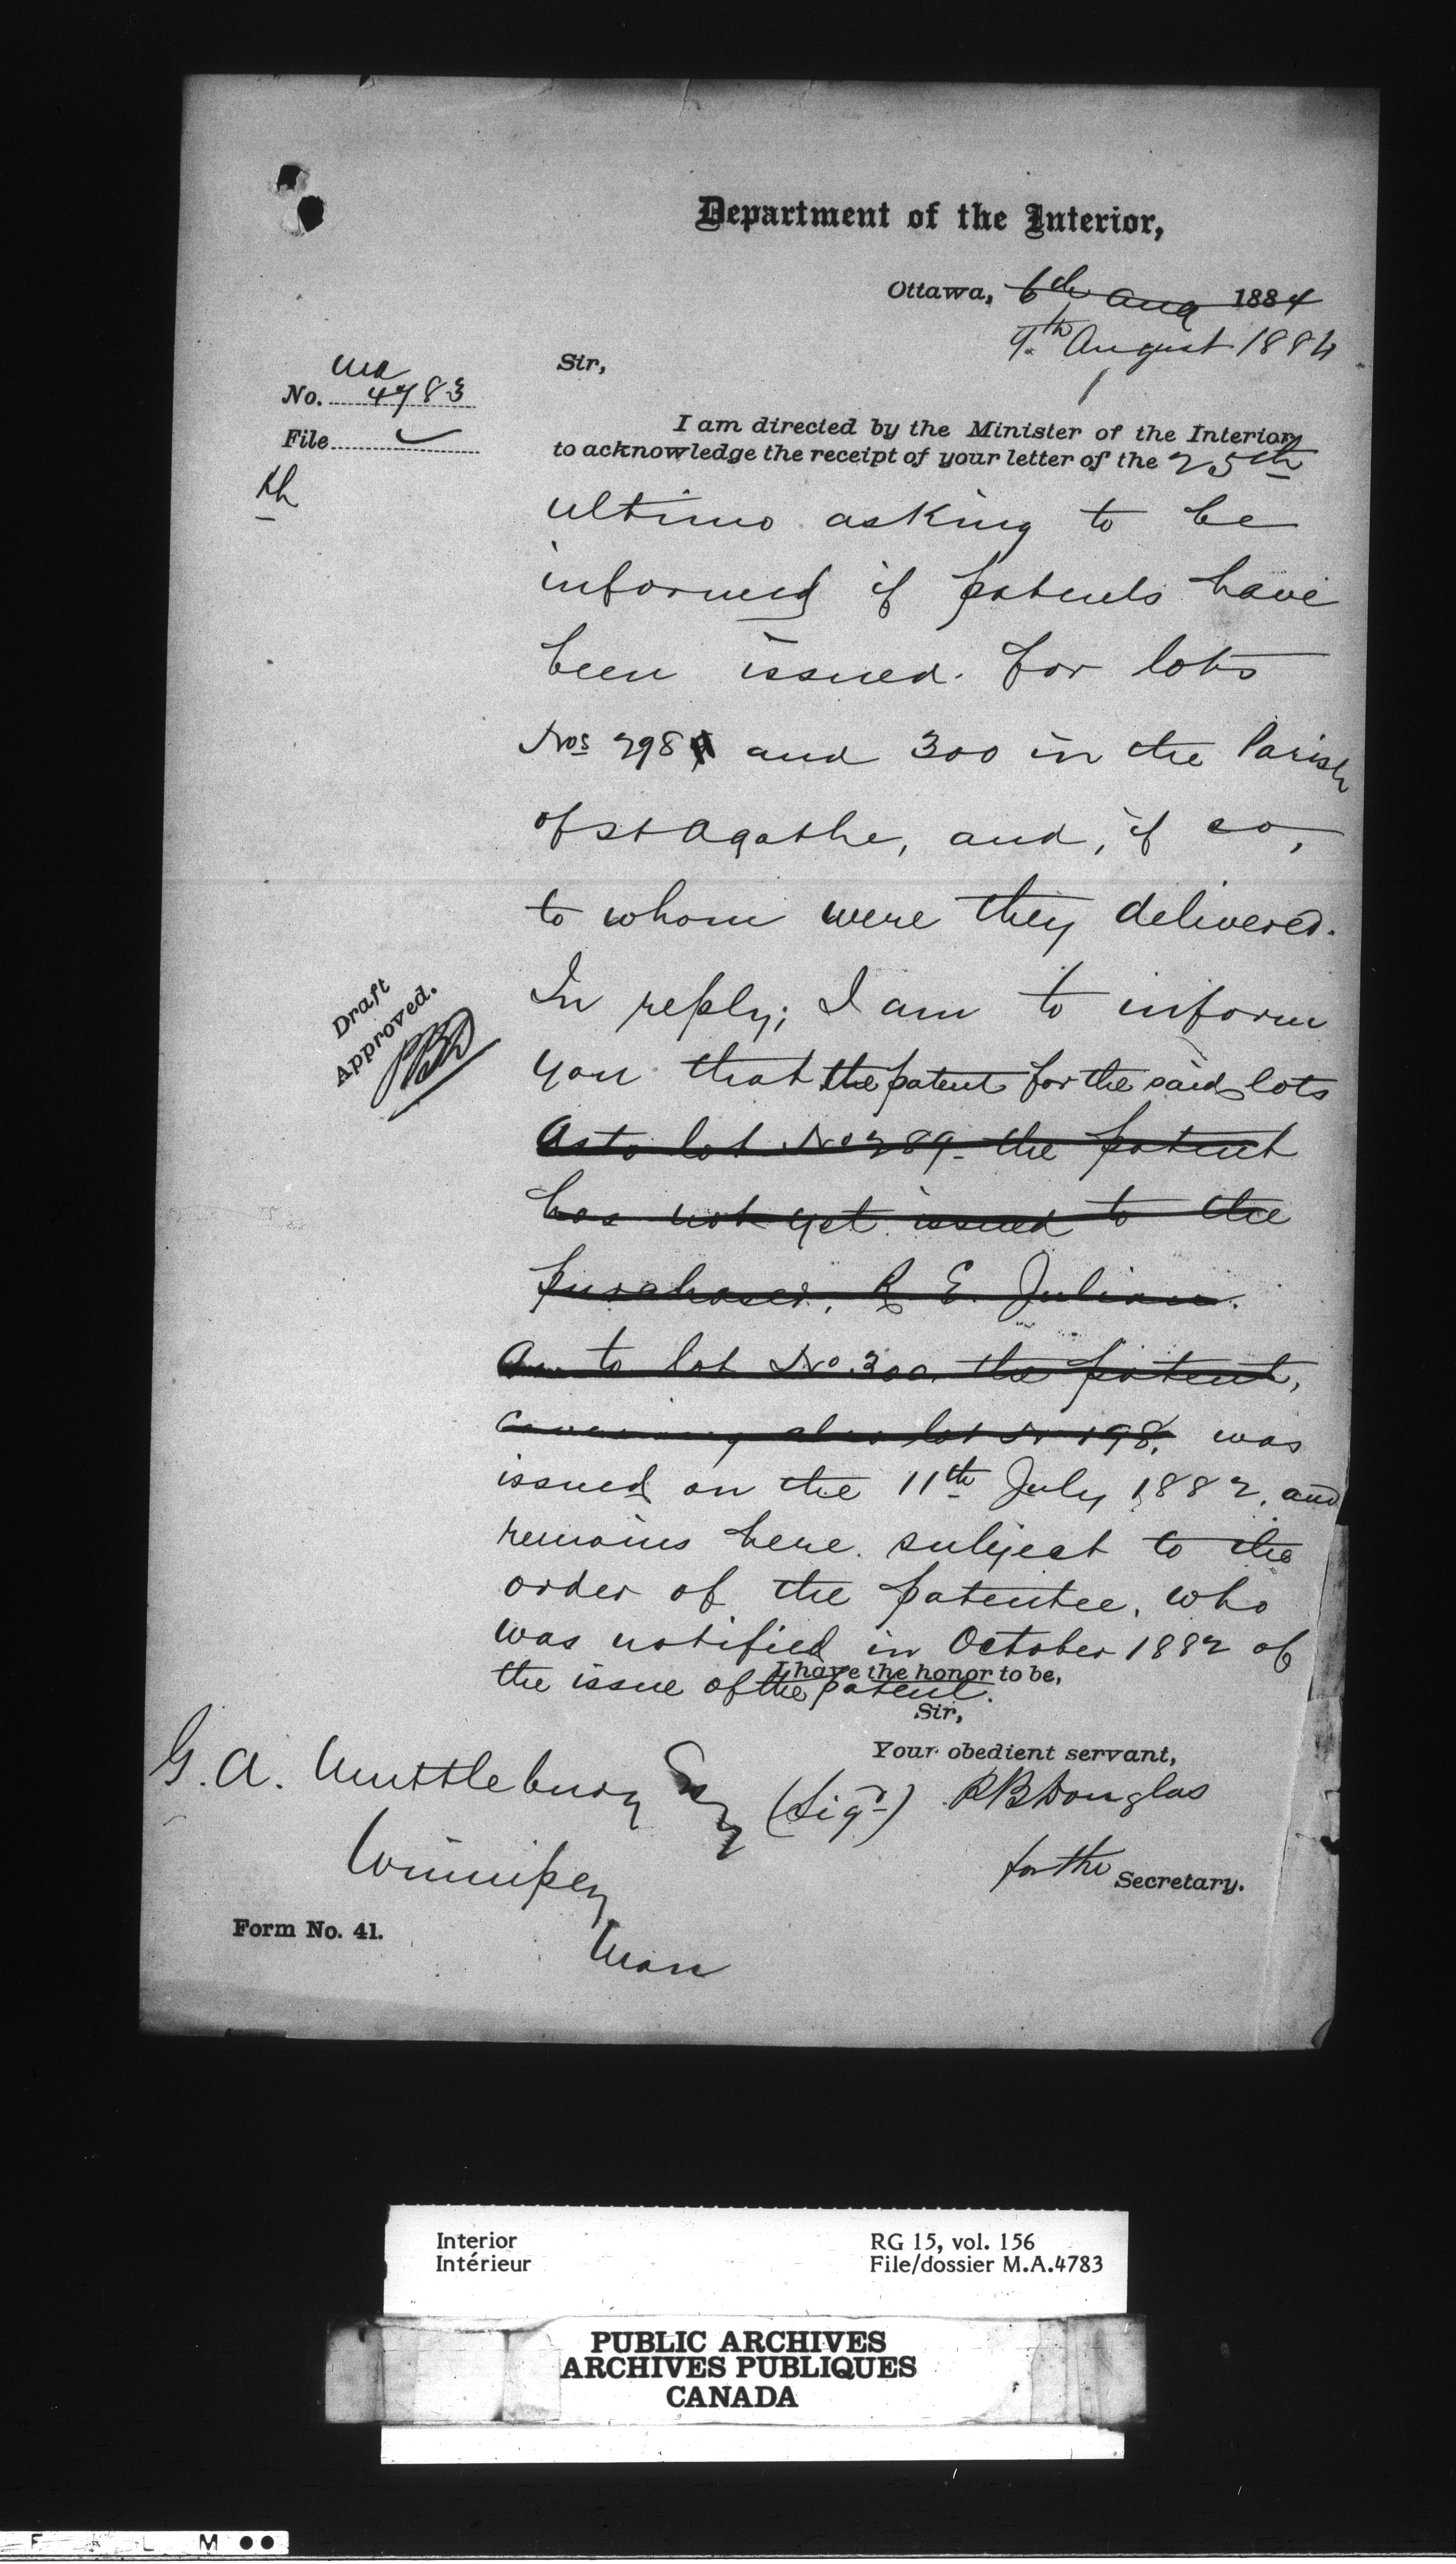 Department of the Interior,
Ottawa, 6th Aug 1884
9th August 1884
Sir,
MA
No. 4783
File
I am directed by the Minister of the Interior
to acknowledge the receipt of your letter of the 25th
ultimo asking to be
informed if patents have
been issued for lots
Nos 298 and 300 in the Parish
of St Agathe, and, if so,
to whom were they delivered.
In reply, I am to inform
you that the patent for the said lots
As to lot No 289 the patent
has not yet issued to the
purchaser, R E. Julian.
As to lot No. 300 the patent,
covering also lot No 298, was
issued on the 11th July 1882, and
remains here subject to the
order of the patentee, who
was notified in October 1882 of
the issue of the patent.
I have the honor to be,
Sir,
Your obedient servant,
(Sigd) P B Douglas
for the Secretary.
Draft
Approved.
PBD
G. A. Muttlebury Esq
Winnipeg
Man
Form No. 41.
Interior
Intérieur
RG 15, vol. 156
File/dossier M.A.4783
PUBLIC ARCHIVES
ARCHIVES PUBLIQUES
CANADA